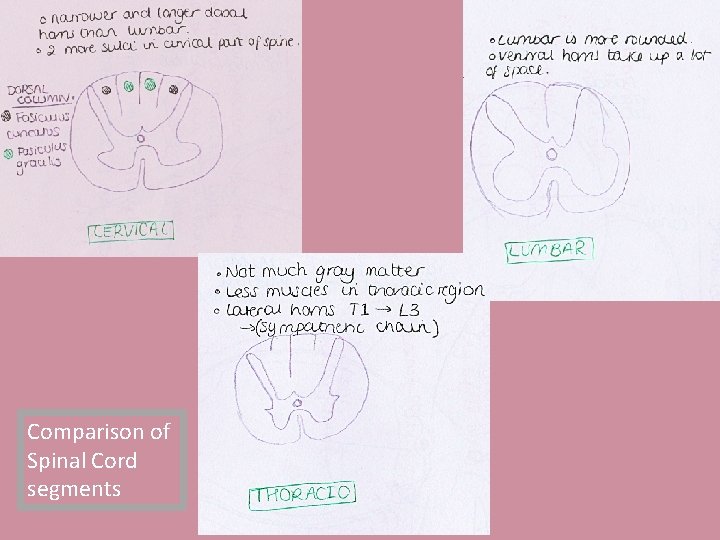 o narrower and longer dorsal
horns than lumbar.
o 2 more sulci in cervical part of spine.
DORSAL
COLUMN.
Fasiculus
cuneatus
Fasiculus
gracilis
CERVICAL
o Lumbar is more rounded.
o ventral horns take up a lot
of space.
LUMBAR
o Not much gray matter
o Less muscles in thoracic region
o lateral horns T1 → L3
→(sympathetic chain)
THORACIC
Comparison of
Spinal Cord
segments